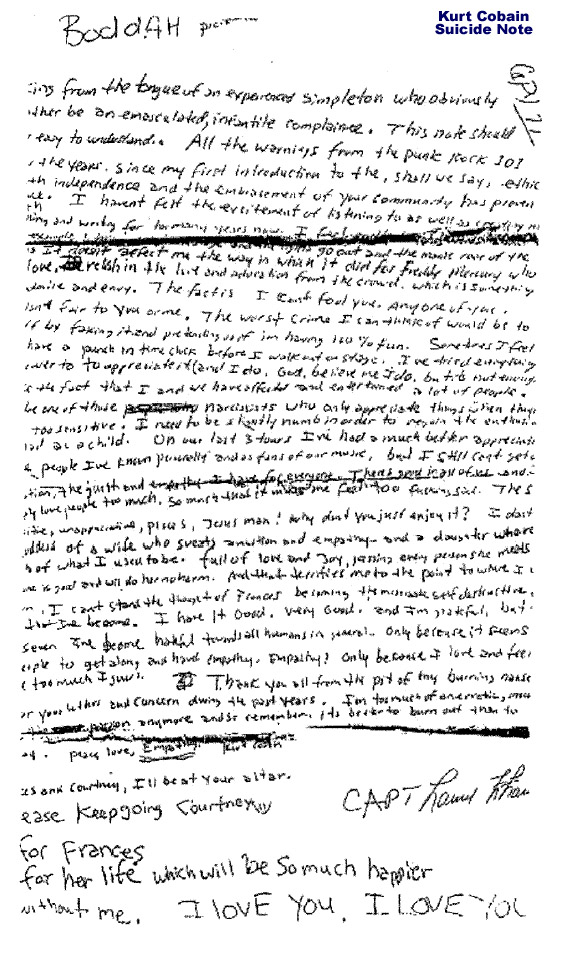 Kurt Cobain
Suicide Note
BoddAH
ing from the tongue of an experienced simpleton who obviously
ther be an emasculated, infantile complainee. This note should
easy to understand. All the warnings from the punk rock 101
the years. Since my first introduction to the, shall we say, ethic
th independence and the embracement of your community has proven
ue. I havent felt the excitement of listening to as well as creating m
ing and writing for too many years now. I feel
go out and the manic roar of the
doesnt affect me the way in which it did for Freddy Mercury who
love, relish in the love and adoration from the crowd. which is something
admire and envy. The fact is I cant fool you. Any one of you.
isnt fair to you or me. The worst crime I can think of would be to
ff by faking it and pretending as if im having 100% fun. Sometimes I feel
have a punch in time clock before I walk out on stage. I've tried everything
ower to appreciate it (and I do, God, believe me I do, but its not enough
the fact that I and we have affected and entertained a lot of people.
be one of those narcissists who only appreciate things when they
too sensitive. I need to be slightly numb in order to regain the enthusias
had as a child. On our last 3 tours I've had a much better appreciatio
people I've known personally and as fans of our music, but I still cant get o
tion, the guilt and empathy I have for everyone. There's good in all of us and i
ly love people too much. So much that it makes me feel too fucking sad. The s
itive, unappreciative, pisces, Jesus man! why dont you just enjoy it? I dont
oddess of a wife who sweats ambition and empathy and a daughter who re
h of what I used to be. full of love and joy, kissing every person she meets
ne is good and will do her no harm. And that terrifies me to the point to where I c
n. I cant stand the thought of Frances becoming the miserable self destructive,
that I've become. I have it Good. very Good. and I'm grateful, but
seven I've become hateful towards all humans in general. Only because it seems
eople to get along and have empathy. Empathy! Only because I love and feel
e too much I guess. Thank you all from the pit of my burning nause
or your letters and concern during the past years. I'm too much of an erratic, moo
person anymore and so remember, its better to burn out than to
peace, love, Empathy. Kurt Cobain
es and Courtney, I'll be at your altar.
ease Keep going Courtney
for Frances
for her life which will be so much happier
without me. I LOVE YOU. I LOVE YOU